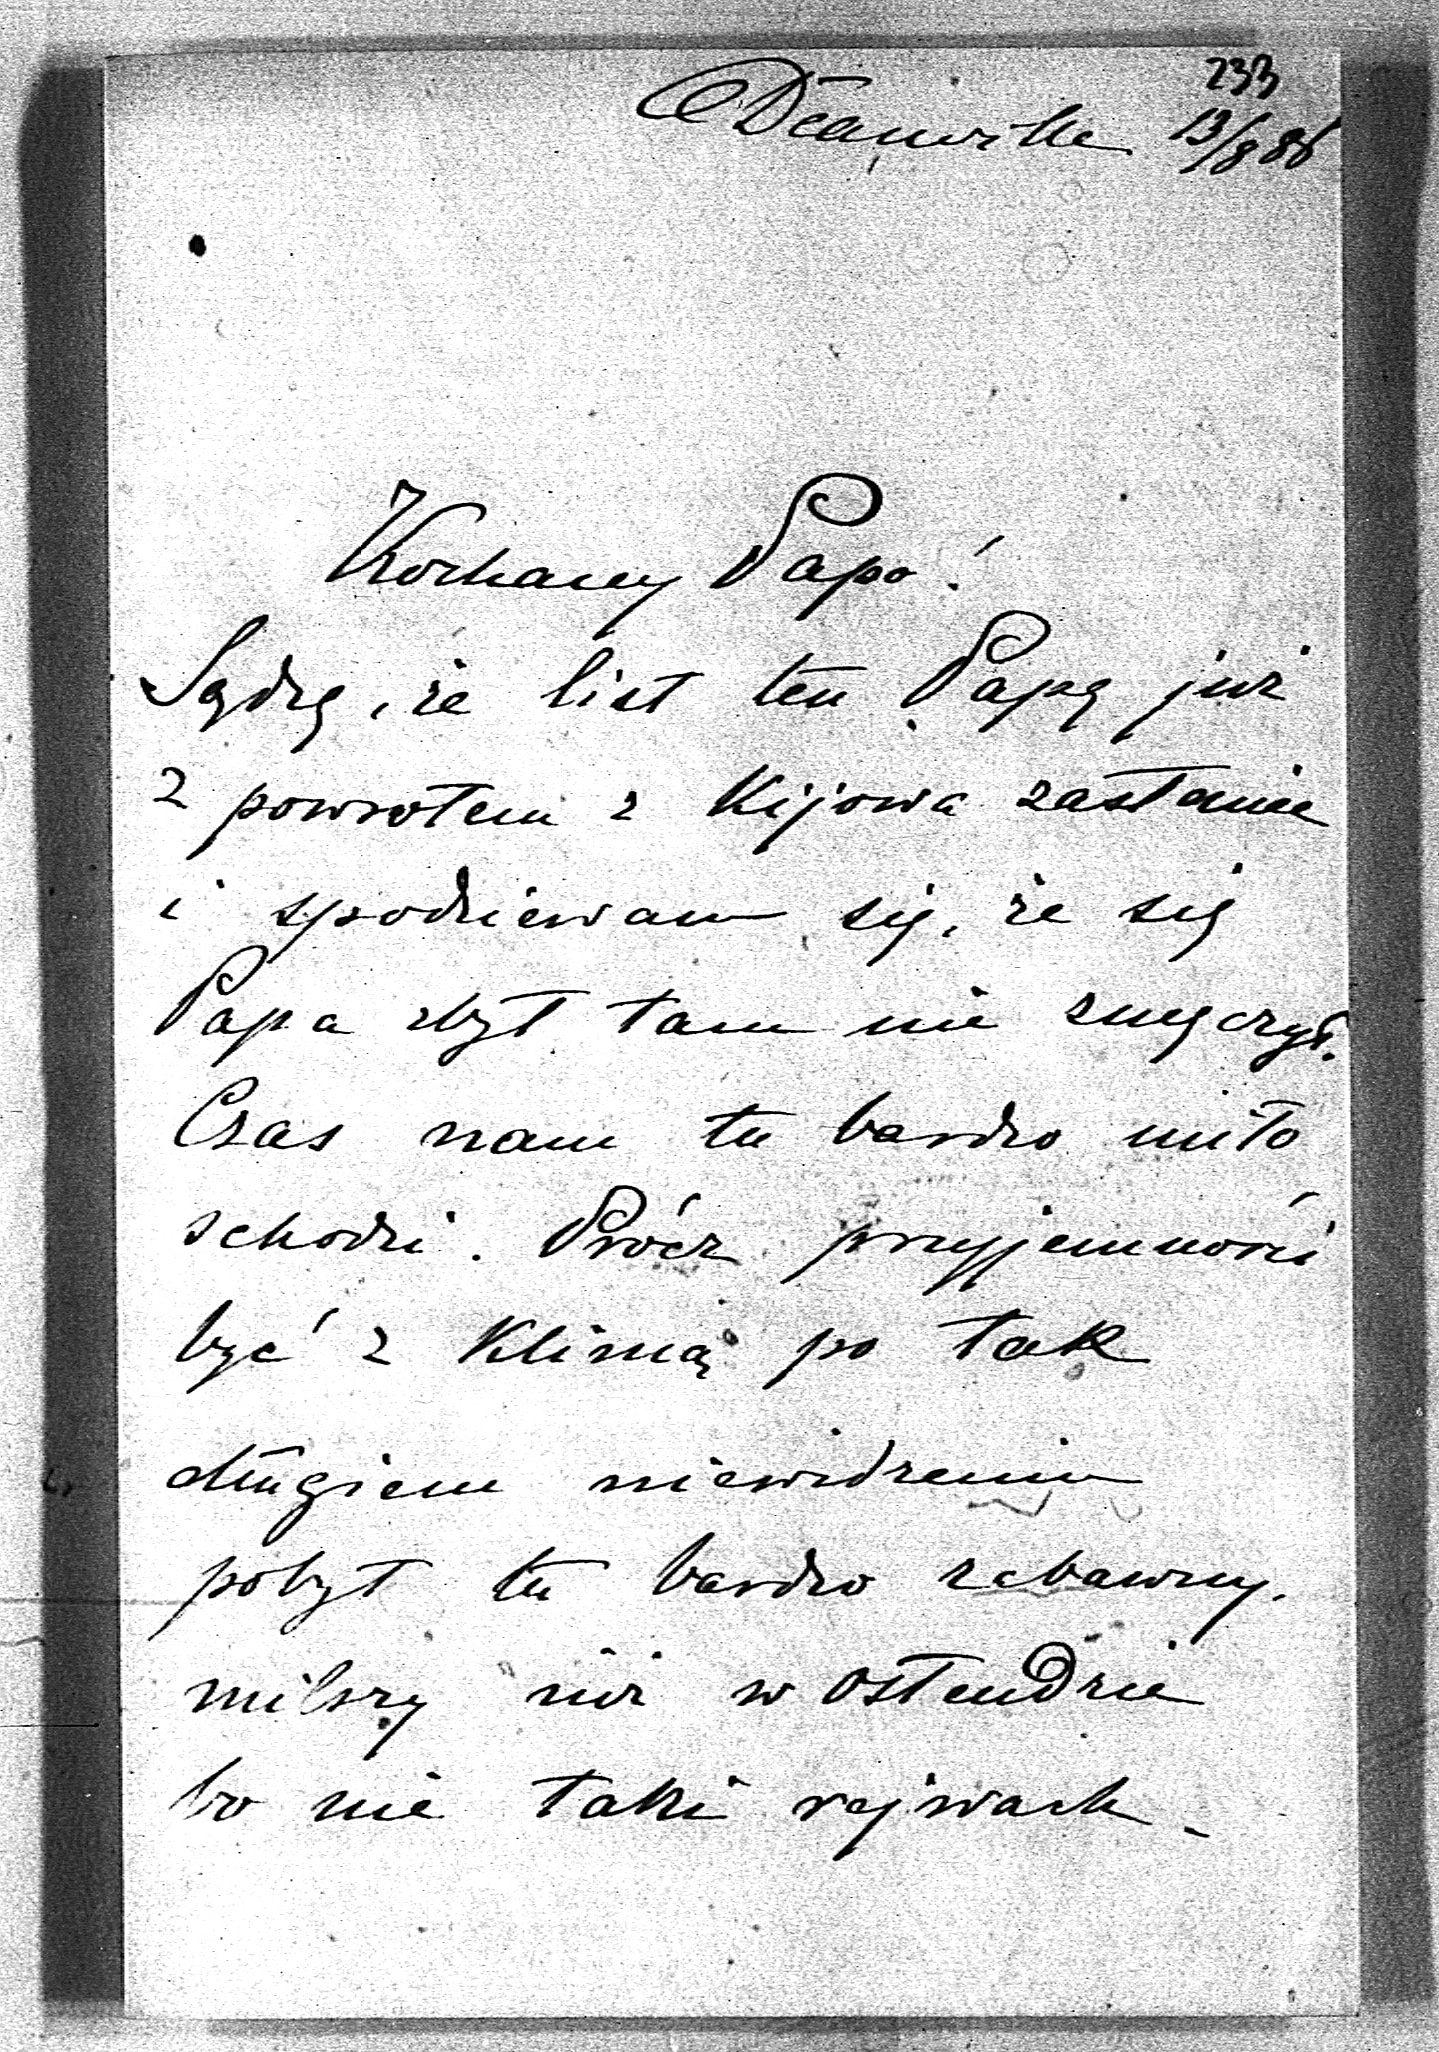 233
Deauville 13/8 88
Kochany Papo!
Sądzę, że list ten Papę już
z powrotem z Kijowa zastanie
i spodziewam się, że się
Papa zbyt tam nie zmęczył.
Czas nam tu bardzo miło
schodzi. Prócz przyjemności
być z Klimą po tak
długiem niewidzeniu
pobyt tu bardzo zabawny,
milszy niż w Ostendzie
bo nie taki rejwach.